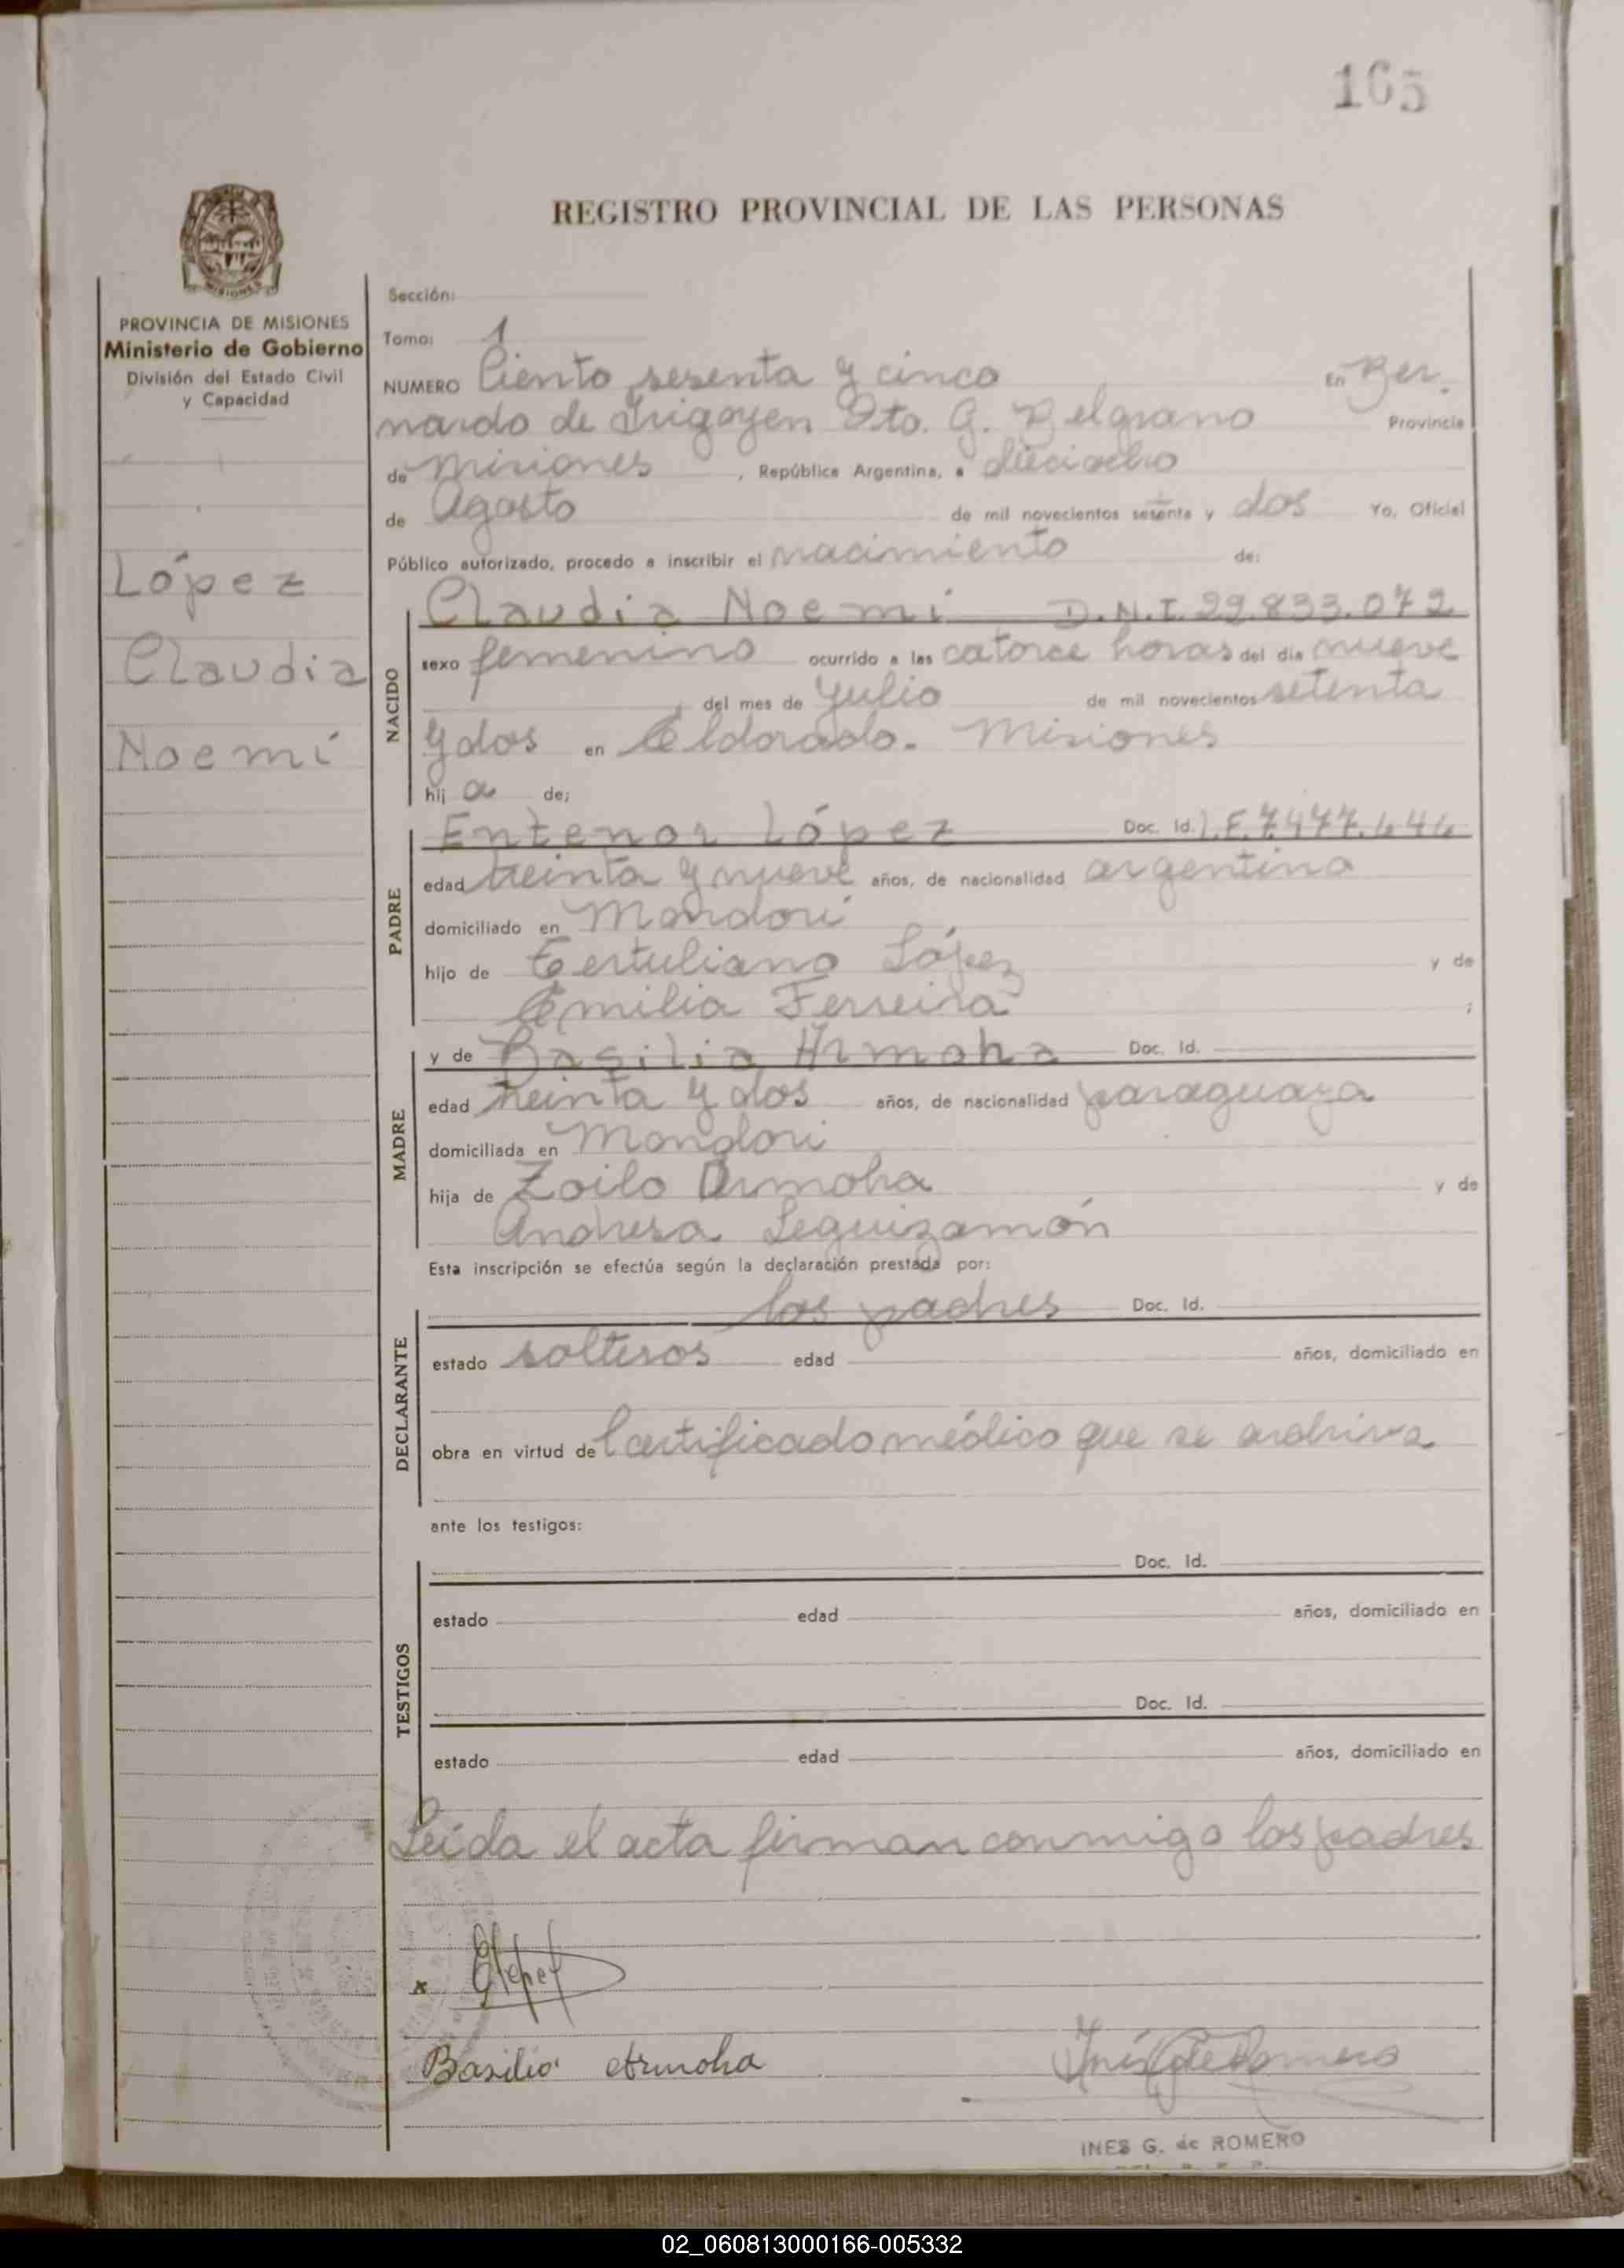 165
REGISTRO PROVINCIAL DE LAS PERSONAS
PROVINCIA DE MISIONES
Ministerio de Gobierno
División del Estado Civil
y Capacidad
López
Claudia
Noemí
Sección:
Tomo: 1
NUMERO Ciento sesenta y cinco En Ber.
nardo de Irigoyen Dto. G. Belgrano Provincia
de Misiones, República Argentina, a dieciocho
de Agosto de mil novecientos setenta y dos Yo, Oficial
Público autorizado, procedo a inscribir el nacimiento de:
NACIDO
Claudia Noemí D.N.I. 22.833.072
sexo femenino ocurrido a las catorce horas del día nueve
del mes de Julio de mil novecientos setenta
y dos en Eldorado. Misiones
hij a de;
PADRE
Entenor López Doc. Id. L.E. 7.477.646
edad treinta y nueve años, de nacionalidad argentina
domiciliado en Mandorí
hijo de Tertuliano López y de
Emilia Ferreira ;
MADRE
y de Basilia Armoha Doc. Id.
edad treinta y dos años, de nacionalidad paraguaya
domiciliada en Mandorí
hija de Zoilo Armoha y de
Andresa Leguizamón
Esta inscripción se efectúa según la declaración prestada por:
DECLARANTE
los padres Doc. Id.
estado solteros edad años, domiciliado en
obra en virtud de Certificado médico que se archiva
ante los testigos:
TESTIGOS
Doc. Id.
estado edad años, domiciliado en
Doc. Id.
estado edad años, domiciliado en
Leída el acta firman conmigo los padres
Basilia Armoha
INES G. de ROMERO
02_060813000166-005332